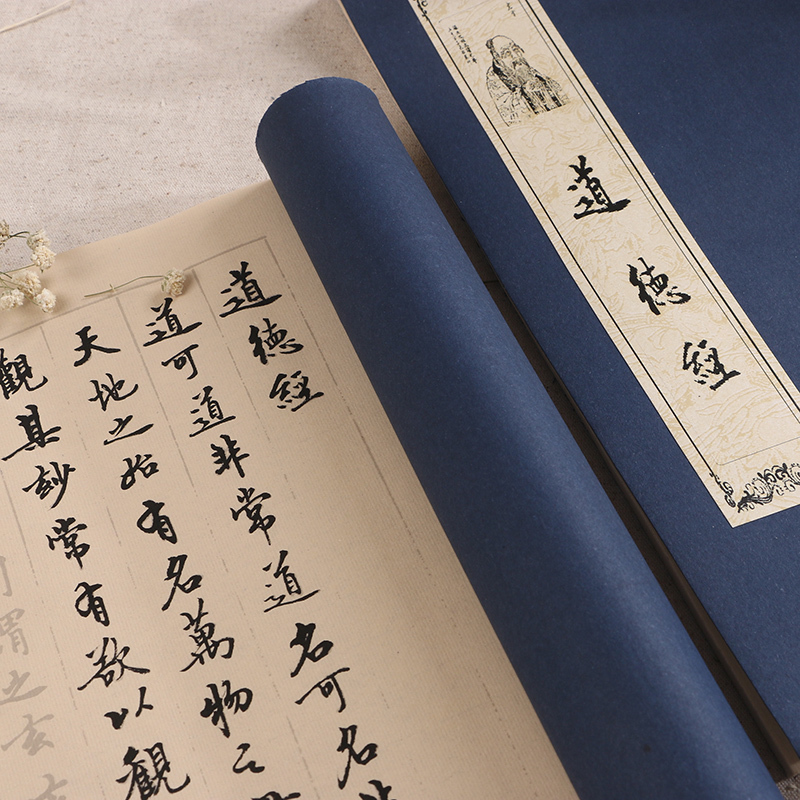 道德經
道可道非常道名可名非
天地之始有名萬物之母
觀其妙常有欲以觀
謂之玄
道德經